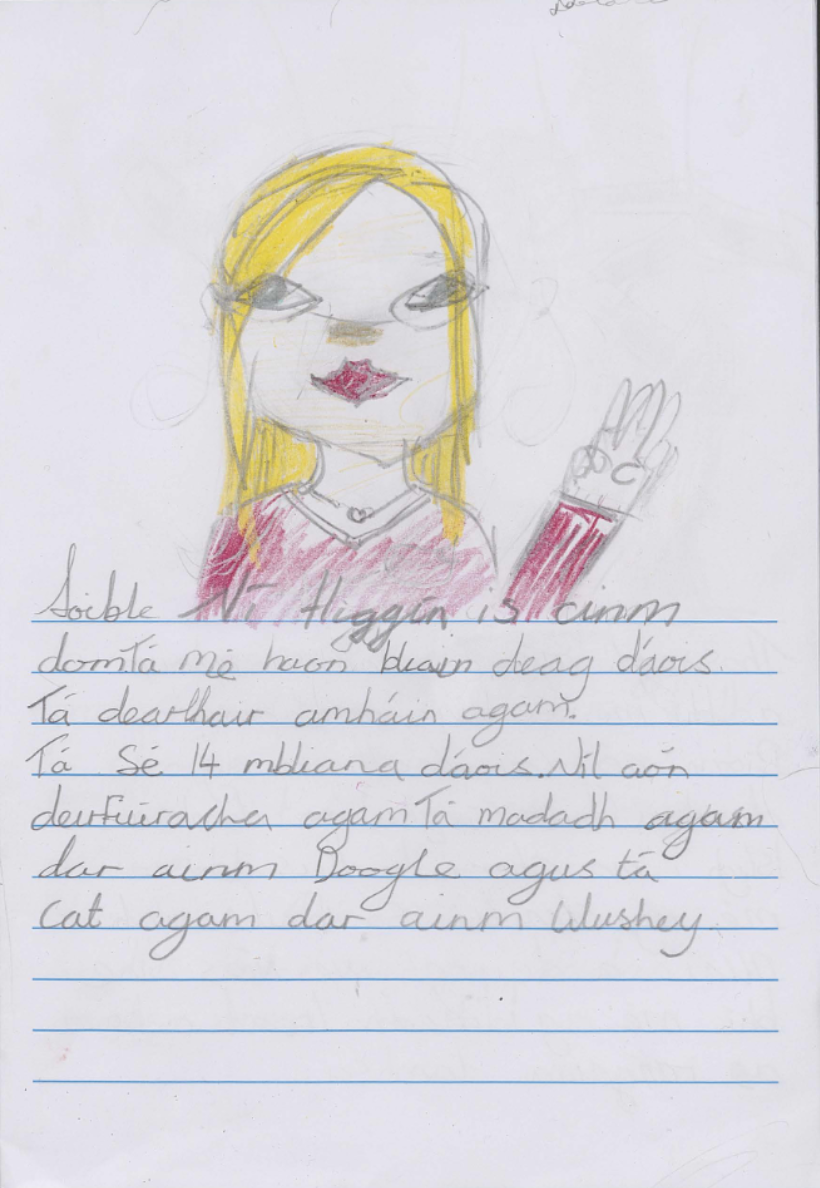 Aoible Ní Higgin is ainm
domTá mé haon bliain deag d'aois.
Tá dearthair amháin agam.
Tá Sé 14 mbliana d'aois. Níl aón
deirfiúracha agam Tá madadh agam
dar ainm Boogle agus tá
Cat agam dar ainm Wushey